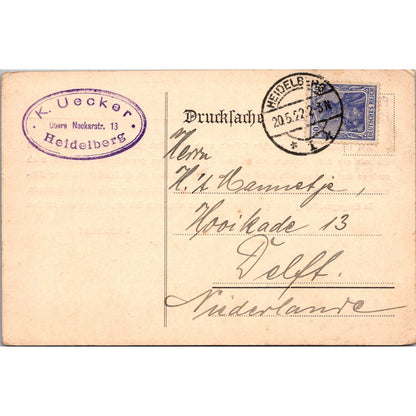 K. Uecker
Obere Neckarstr. 13
Heidelberg
Drucksache
HEIDELBERG
20.5.22.
* 1 k
DEUTSCHES REICH
Herrn
Hooikade 13
Delft.
Niederlande